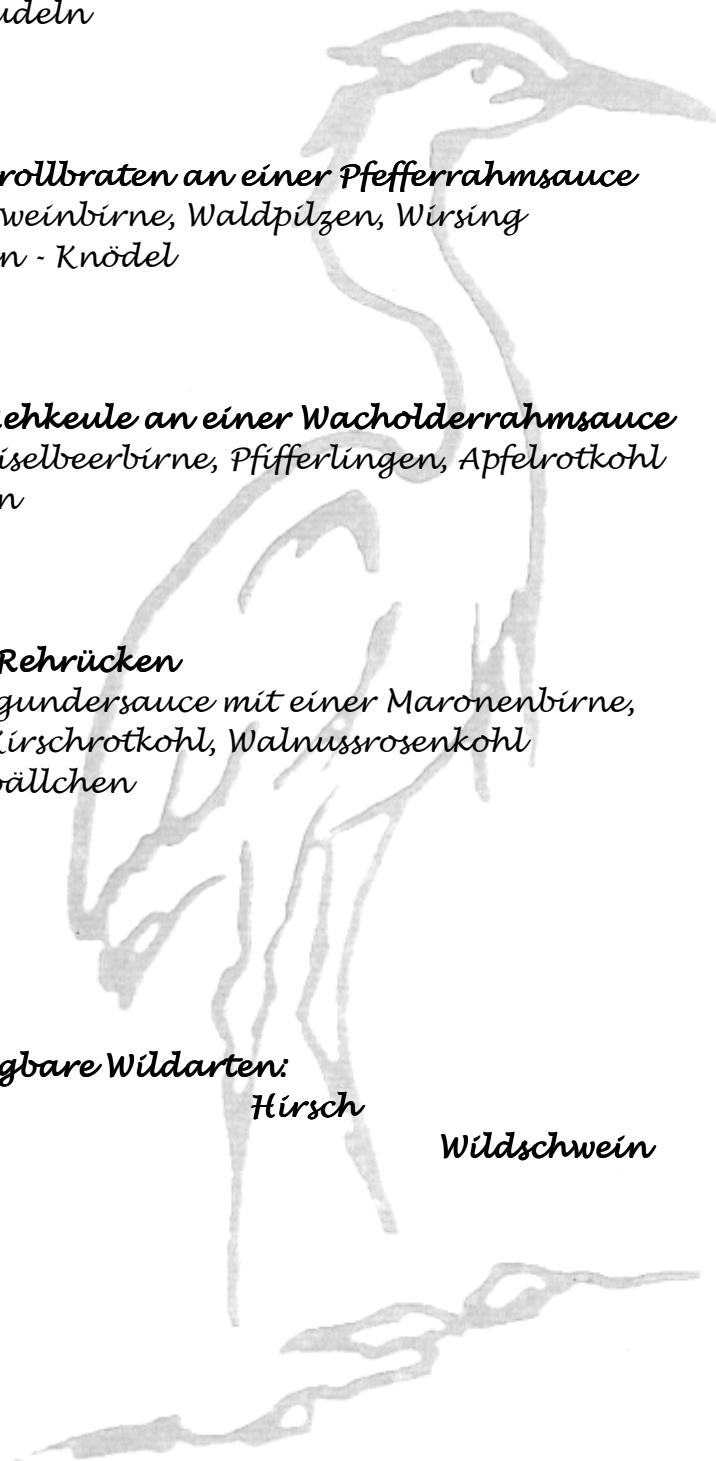 udeln
rollbraten an einer Pfefferrahmsauce
weinbirne, Waldpilzen, Wirsing
n - Knödel
ehkeule an einer Wacholderrahmsauce
iselbeerbirne, Pfifferlingen, Apfelrotkohl
n
Rehrücken
gundersauce mit einer Maronenbirne,
Kirschrotkohl, Walnussrosenkohl
bällchen
gbare Wildarten:
Hirsch
Wildschwein